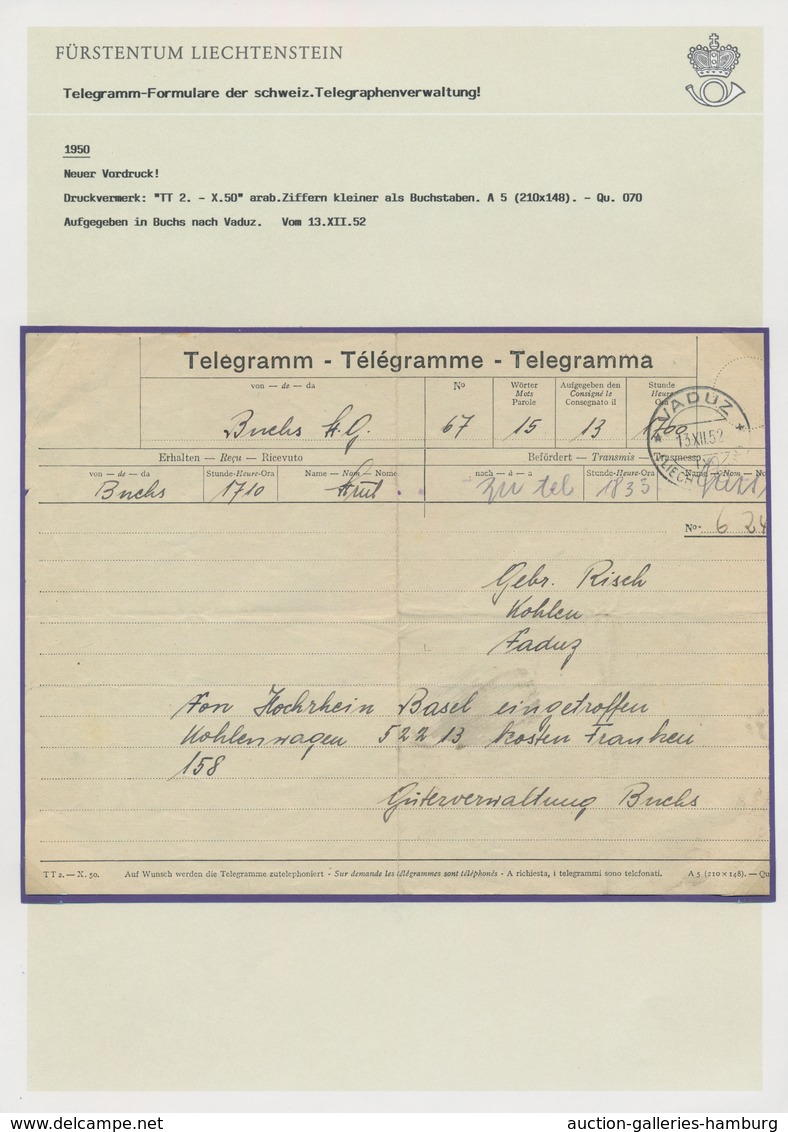 FÜRSTENTUM LIECHTENSTEIN
Telegramm-Formulare der schweiz.Telegraphenverwaltung!
1950
Neuer Vordruck!
Druckvermerk: "TT 2. - X.50" arab.Ziffern kleiner als Buchstaben. A 5 (210x148). - Qu. 070
Aufgegeben in Buchs nach Vaduz. Vom 13.XII.52
Telegramm - Télégramme - Telegramma
von — de — da
No
Wörter
Mots
Parole
Aufgegeben den
Consigné le
Consegnato il
Stunde
Heure
Ora
VADUZ
13.XII.52
Buchs St.G. 67 15 13 1700
Erhalten — Reçu — Ricevuto
Befördert — Transmis — Trasmesso
von — de — da
Stunde-Heure-Ora
Name — Nom — Nome
nach — à — a
Stunde-Heure-Ora
Name — Nom — No
Buchs 1710 zu tel 1833
No. 6 24
Gebr. Risch
Kohlen
Vaduz
Von Hochrhein Basel eingetroffen
Kohlenwagen 522 13 kosten Franken
158
Güterverwaltung Buchs
TT 2. — X. 50.
Auf Wunsch werden die Telegramme zutelephoniert - Sur demande les télégrammes sont téléphonés - A richiesta, i telegrammi sono telefonati.
A 5 (210 × 148). — Qu
www.delcampe.net
auction-galleries-hamburg